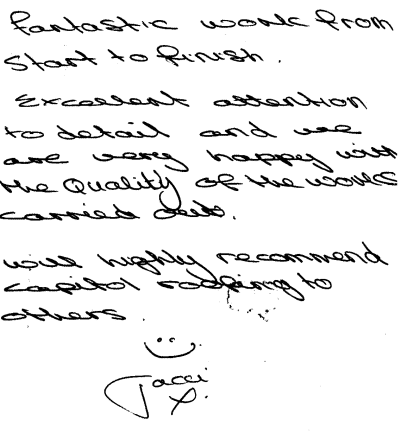 fantastic work from
start to finish.
Excellent attention
to detail and we
are very happy with
the Quality of the works
carried out.
will highly recommend
capitol roofing to
others.
Jacci
x